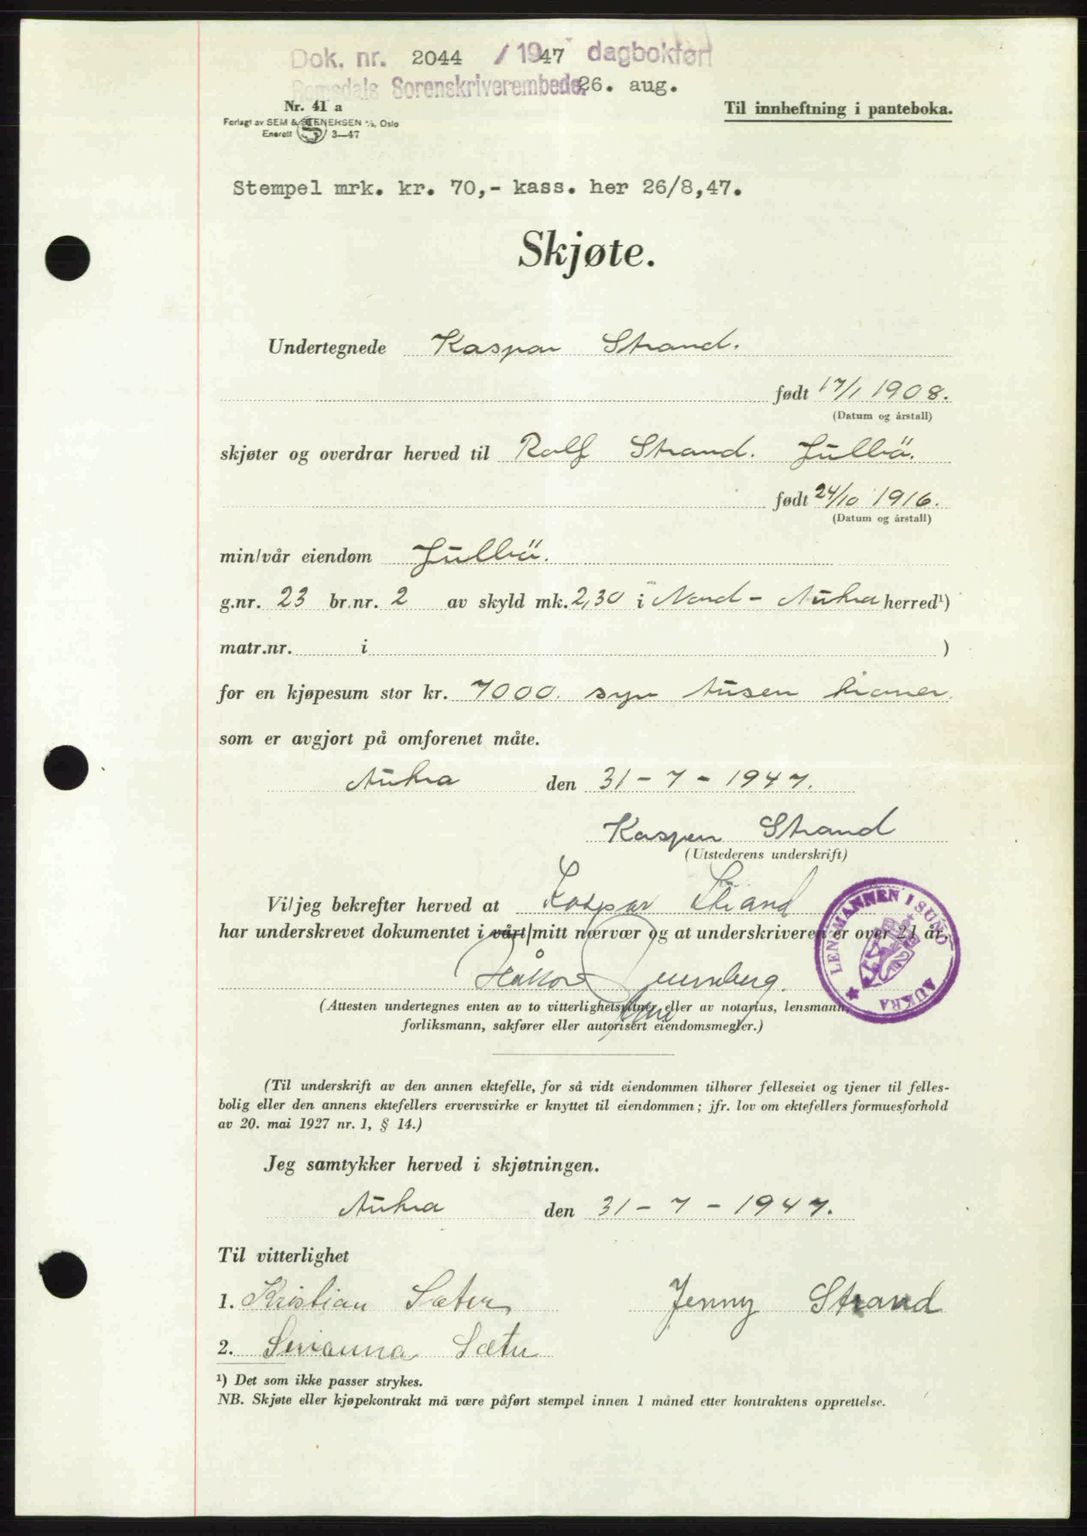 Dok. nr. 2044 / 1947 dagbokført
Romsdals Sorenskriverembede 26. aug.
Nr. 41 a
Til innheftning i panteboka.
Forlagt av SEM & STENERSEN A/S, Oslo
Enerett S 3—47
Stempel mrk. kr. 70,- kass. her 26/8,47.
Skjøte.
Undertegnede Kaspar Strand.
født 17/1 1908.
(Datum og årstall)
skjøter og overdrar herved til Rolf Strand. Julbö.
født 24/10 1916.
(Datum og årstall)
min/vår eiendom Julbö.
g.nr. 23 br.nr. 2 av skyld mk. 2,30 i Nord - Aukra herred¹)
matr.nr. i )
for en kjøpesum stor kr. 7000. syv tusen kroner.
som er avgjort på omforenet måte.
Aukra den 31 - 7 - 1947.
Kasper Strand
(Utstederens underskrift)
Vi/jeg bekrefter herved at Kaspar Strand
har underskrevet dokumentet i vårt/mitt nærvær og at underskriveren er over 21 år.
Håkon
(Attesten undertegnes enten av to vitterlighetsvitner eller av notarius, lensmann,
forliksmann, sakfører eller autorisert eiendomsmegler.)
LENSMANNEN I SUND
AUKRA
(Til underskrift av den annen ektefelle, for så vidt eiendommen tilhører felleseiet og tjener til felles-
bolig eller den annens ektefellers ervervsvirke er knyttet til eiendommen; jfr. lov om ektefellers formuesforhold
av 20. mai 1927 nr. 1, § 14.)
Jeg samtykker herved i skjøtningen.
Aukra den 31 - 7 - 1947.
Til vitterlighet
1. Kristian Sæter Jenny Strand
2. Sæter
¹) Det som ikke passer strykes.
NB. Skjøte eller kjøpekontrakt må være påført stempel innen 1 måned etter kontraktens opprettelse.